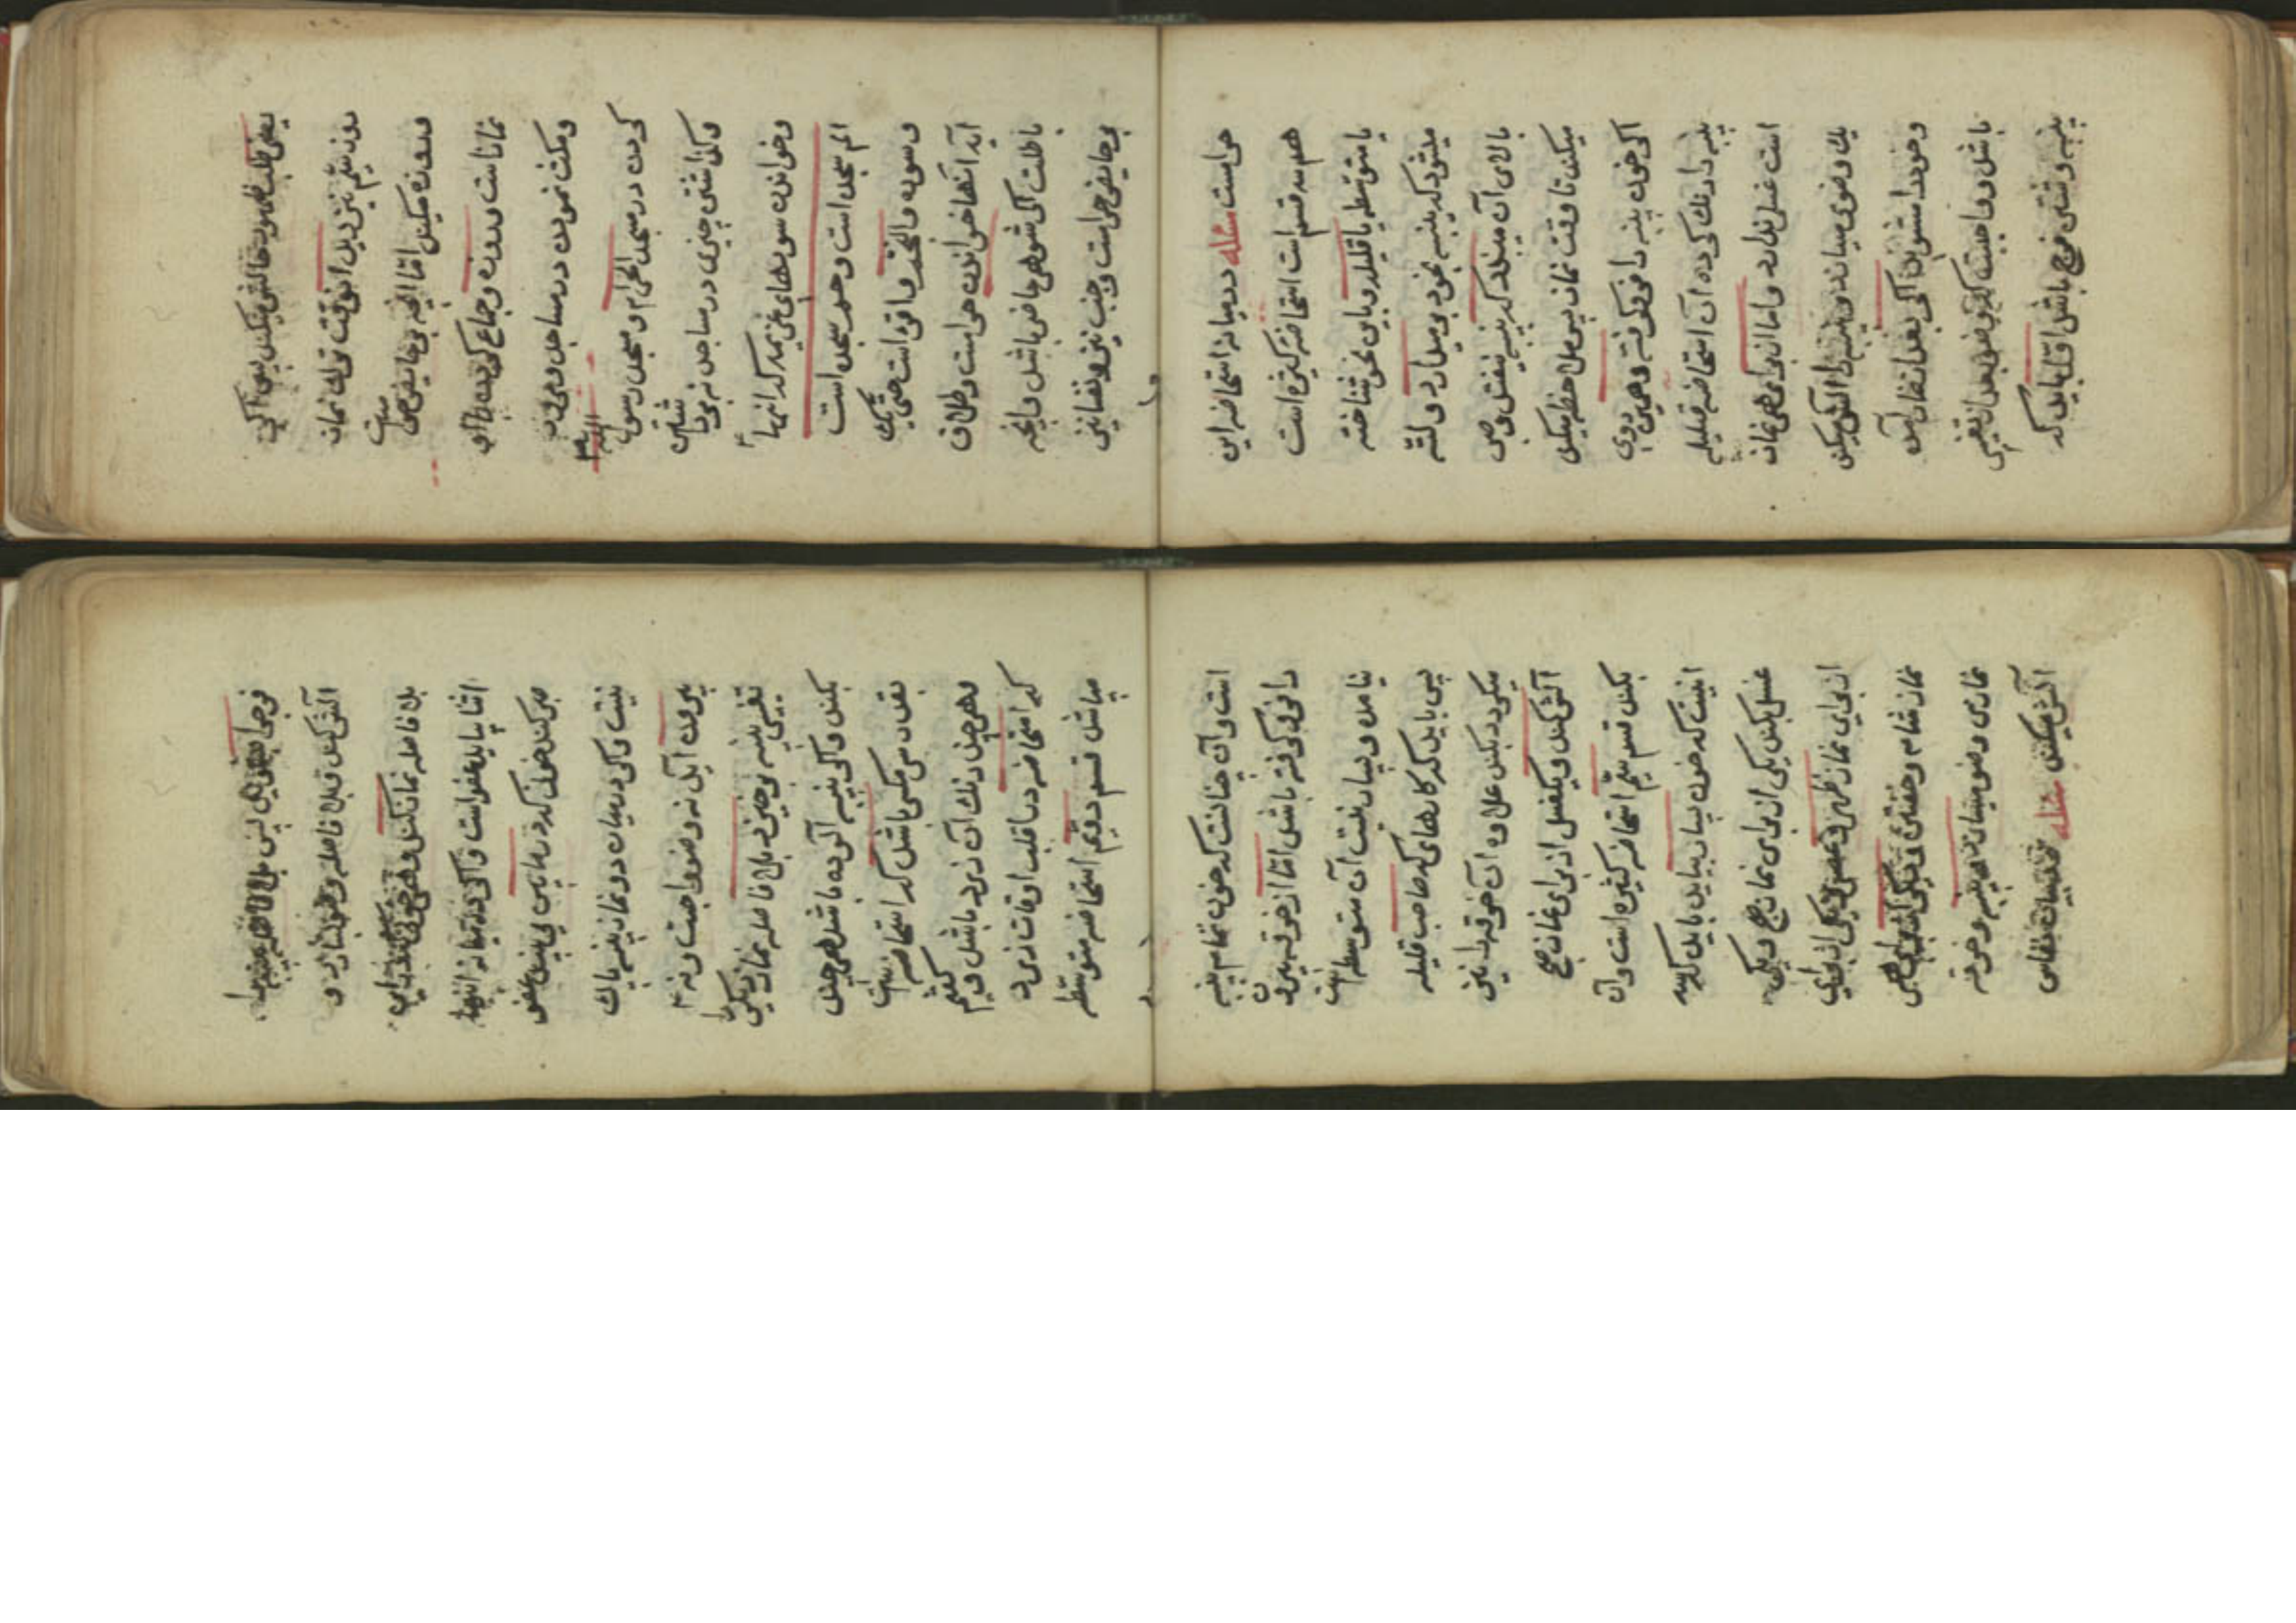 يعنی طلب ظهور تخالفی میکند پس اگر
روز سیم نیز دید از وقت ترك نماز
و روزه میکند اما آنچه بر حایض حرام است
نماز است و روزه و جماع کردن با او
و مکث نمودن در مساجد و عبور
کردن در مسجد الحرام و مسجد رسول الله ص
و گذاشتن چیزی در مساجد نه برداشتن
و خواندن سورهای عزیمه که آنها
الم سجده است و حم سجده است
و سوره والنجم و اقرا است حتی یك
آیه آنها خواندن حرام است و طلاق
باطلست اگر شوهر حاضر باشد و آنچه
بر حایض حرام است بر جنب نیز و نفسا نیز
حرام است مسئله در میانه استحاضه این
هم سه قسم است استحاضه کثیره است
یا متوسطه یا قلیله و باین نحو شناخته
میشود که پنبه بخود بر میدارد و لته
بالای آن میبندد که پنبه نیفتد و صبر
میکند تا وقت نماز پس ملاحظه میکند
اگر خون پنبه را فرو گرفته و همین روی
پنبه را رنك کرده آن استحاضه قلیله
است غسل ندارد و اما از برای هر نماز
یك وضوی میسازد و پنبه را آلش میکند
و خود را میشوید اگر بقدر نقار آمده
باشد و واجبست که وضو بعد از تغییر
پنبه و شستن فرج باشد اولا باید که
فرج را بشوید پس بلا فاصله پنبه را
آلش کند و بلا فاصله وضو بسازد و
بلا فاصله نماز کند و هر خونی که در این
اثنا بیاید عفو است و اگر در میانه اینها
صبر کند خونی که در میانه میاید عفو
نیست و اگر در میان دو نماز پنبه پاك
بیرون آید نه وضو واجبست و نه
تغییر پنبه بر خیزد بلا فاصله نماز دیگر را
بکند و اگر پنبه آلوده باشد هر چند
بقدر سر مکسی باشد که استحاضه است
و هر چند رنك آن زرد باشد و گفتم
که استحاضه در اغلب اوقات زرد
میباشد قسم دویم استحاضه متوسطه
است و آن چنانست که خون تمام پنبه
را فرو گرفته باشد اما از خرقه بیرون
نیامده و بسا رفت آن متوسطه است
پس باید که کارهای که صاحب قلیله
میکرد بکند علاوه آن خرقه را نیز
آلش کند و یکغسل از برای نماز صبح
بکند قسم سیم استحاضه کثیره است و آن
اینست که خون بسیار بیاید باید که سه
غسل بکند یکی از برای نماز صبح و یکی
از برای نماز ظهر و عصر و یکی از برای
نماز شام و خفتن و از برای هر
نمازی وضو میسازد و پنبه و خرقه
آلش میکند مسئله در میانه نفاس